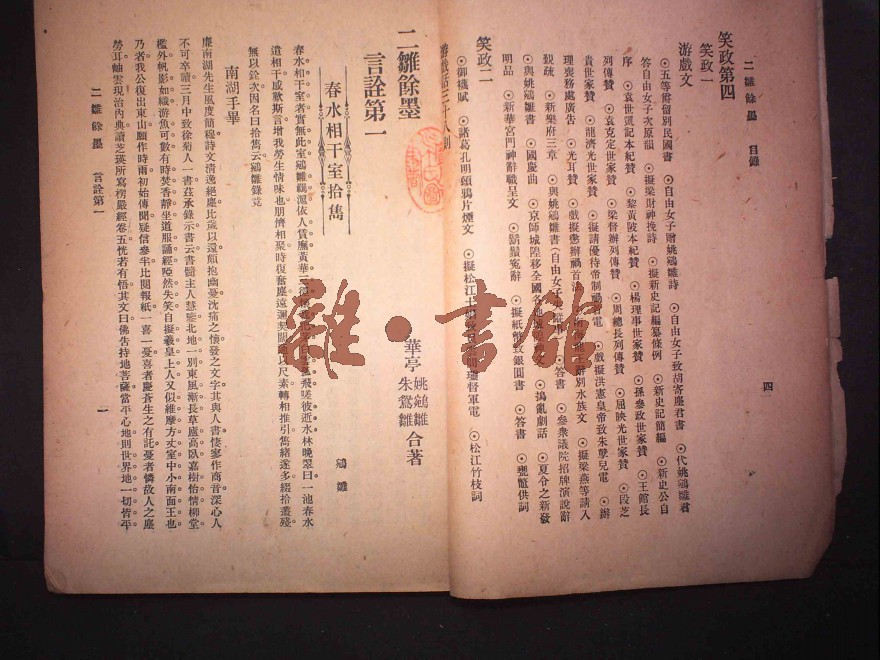 二雛餘墨　目錄
四
笑政第四
笑政一
游戲文
◎五等爵留別民國書　◎自由女子贈姚鵷雛詩　◎自由女子致胡寄塵君書　◎代姚鵷雛君
答自由女子次原韻　◎擬梁財神挽詩　◎擬新史記編纂條例　◎新史記簡編　◎新史公自
序　◎袁世凱記本紀贊　◎黎黃陂本紀贊　◎楊理事世家贊　◎孫參政世家贊　◎王館長
列傳贊　◎袁克定世家贊　◎梁督辦列傳贊　◎周總長列傳贊　◎屈映光世家贊　◎段芝
貴世家贊　◎龍濟光世家贊　◎擬請優待帝制禍首電　◎戲擬洪憲皇帝致朱孽兒電　◎辦
理喪務處廣告　◎光耳贊　◎戲擬懲辦禍首
辭別水族文　◎擬梁燕等請入
覲疏　◎新樂府三章　◎與姚鵷雛書（自由女子
◎答書　◎參衆議院招牌演說辭
◎與姚鵷雛書　◎國慶曲　◎京師城隍移全國各
◎搗亂劇話　◎夏令之新發
明品　◎新華宮門神辭職呈文　◎鬍鬚寃辭　◎擬紙
致銀圓書　◎答書　◎甕甑供詞
笑政二
◎御襪賦　◎諸葛孔明顧鴉片煙文　◎擬松江十
督軍電　◎松江竹枝詞
游戲話三十八則
二雛餘墨
言詮第一
華亭
姚鵷雛
朱鴛雛
合著
春水相干室拾雋
鵷雛
春水相干室者實無此室鵷雛羈滬依人賃廡黃華
飛嗟彼逝水林晚翠曰一池春水
遣相干感歎斯言增我勞生情味也朋儕相聚時復奮塵遠
以尺素轉相推引雋緒遂多綴拾叢殘
無以銓次因名曰拾雋云鵷雛錄竟
南湖手畢
廉南湖先生風度簡穆詩文清逸絕塵比歲以還頗抱幽憂沈痛之懷發之文字其與人書悽寥作商音深心人
不可卒讀三月中致徐菊人一書茲承錄示書云書髓主人慧鑒北地一別東風漸長草廬高臥嘉樹怡情柳堂
檻外帆影如織游魚可數有時焚香靜坐道服誦經啞然失笑自擬羲皇上人又似維摩方丈室中小南面王也
乃者我公復出東山願作時雨初始傳聞疑信參半比閱報紙一喜一憂喜者慶蒼生之有託憂者憐故人之塵
勞耳岫雲現治內典讀芝瑛所寫楞嚴經卷五恍若有悟其文曰佛告持地菩薩當平心地則世界地一切皆平
二雛餘墨　言詮第一
一
雜·書館